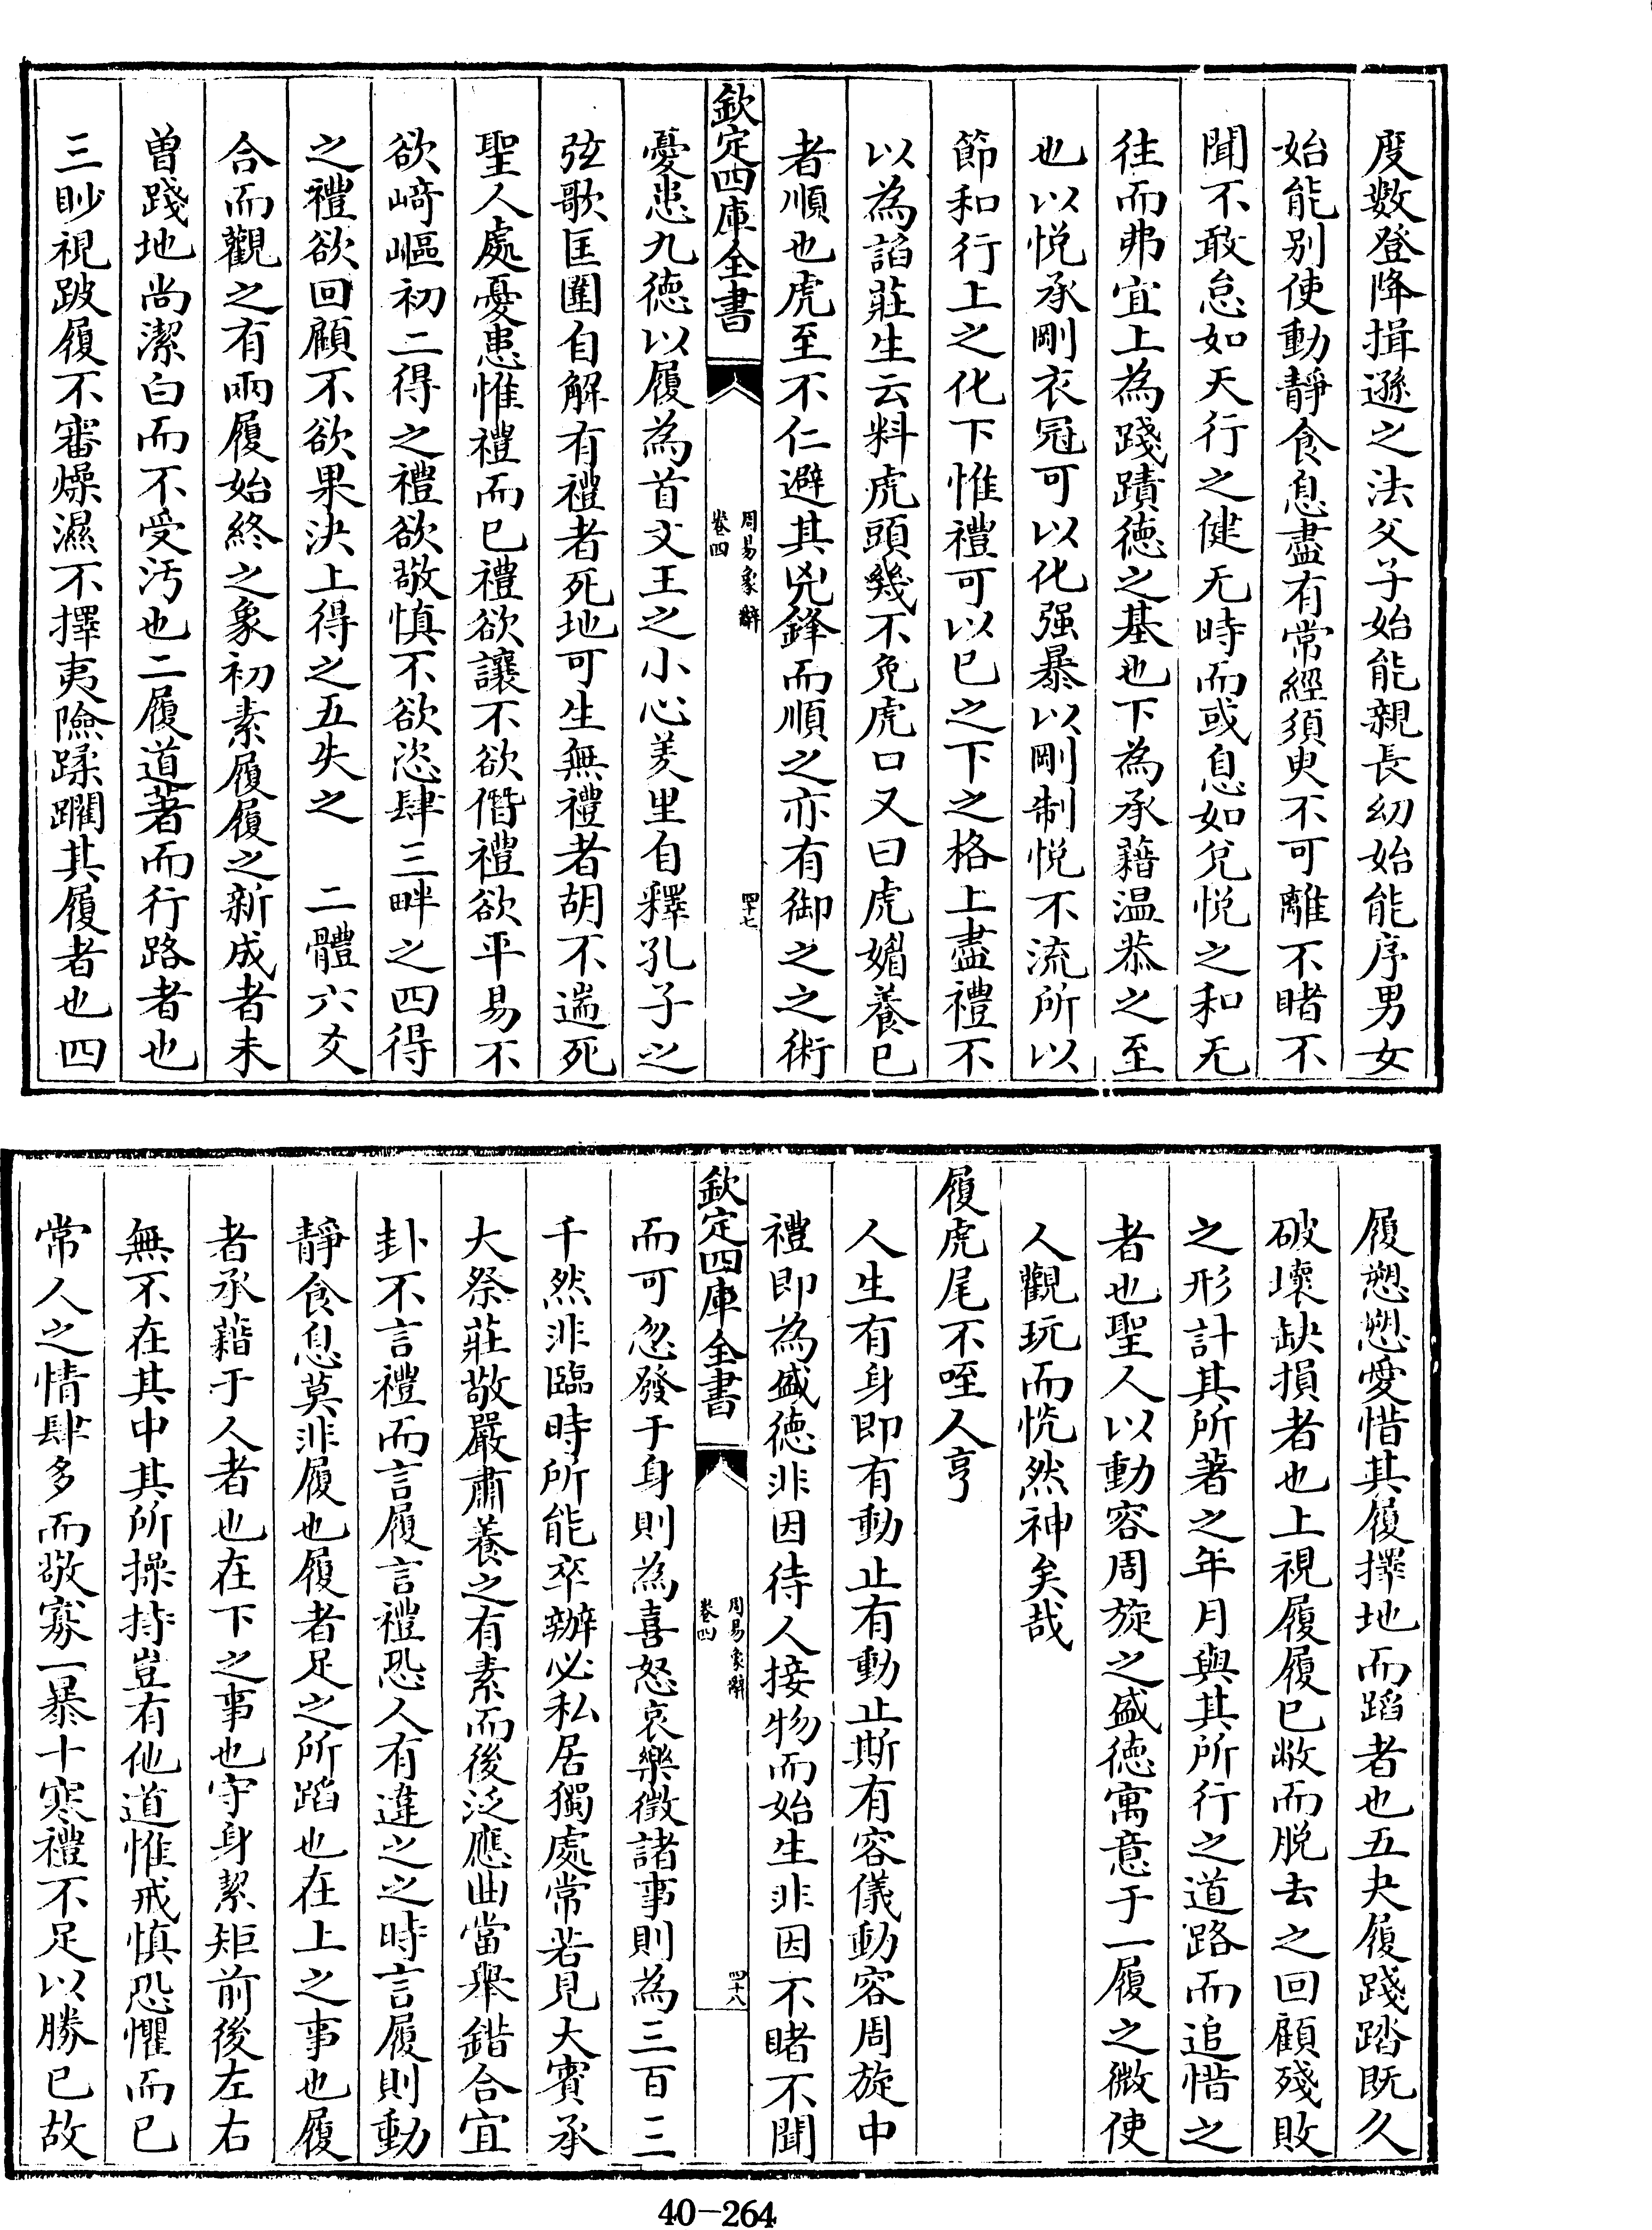 度數登降揖遜之法父子始能親長幼始能序男女
始能别使動靜食息盡有常經須臾不可離不睹不
聞不敢怠如天行之健无時而或息如兌悅之和无
往而弗宜上為踐蹟徳之基也下為承藉温恭之至
也以悅承剛衣冠可以化强暴以剛制悅不流所以
節和行上之化下惟禮可以已之下之格上盡禮不
以為諂莊生云料虎頭幾不免虎口又曰虎媚養已
者順也虎至不仁避其兇鋒而順之亦有御之之術
欽定四庫全書
周易象辭
卷四
四十七
憂患九徳以履為首文王之小心羑里自釋孔子之
弦歌匡圍自解有禮者死地可生無禮者胡不遄死
聖人處憂患惟禮而已禮欲讓不欲僭禮欲平易不
欲﨑嶇初二得之禮欲敬慎不欲恣肆三畔之四得
之禮欲回顧不欲果決上得之五失之　二體六爻
合而觀之有兩履始終之象初素履履之新成者未
曾踐地尚潔白而不受汚也二履道著而行路者也
三眇視跛履不審燥濕不擇夷險蹂躙其履者也四
履愬愬愛惜其履擇地而蹈者也五夬履踐踏既久
破壞缺損者也上視履履已敝而脱去之回顧殘敗
之形計其所著之年月與其所行之道路而追惜之
者也聖人以動容周旋之盛徳寓意于一履之微使
人觀玩而恍然神矣哉
履虎尾不咥人亨
人生有身即有動止有動止斯有容儀動容周旋中
禮即為盛徳非因待人接物而始生非因不睹不聞
欽定四庫全書
周易象辭
卷四
四十八
而可忽發于身則為喜怒哀樂徵諸事則為三百三
千然非臨時所能卒辦必私居獨處常若見大賓承
大祭莊敬嚴肅養之有素而後泛應曲當舉錯合宜
卦不言禮而言履言禮恐人有違之之時言履則動
靜食息莫非履也履者足之所蹈也在上之事也履
者承藉于人者也在下之事也守身絜矩前後左右
無不在其中其所操持豈有他道惟戒慎恐懼而已
常人之情肆多而敬寡一暴十寒禮不足以勝已故
40-264